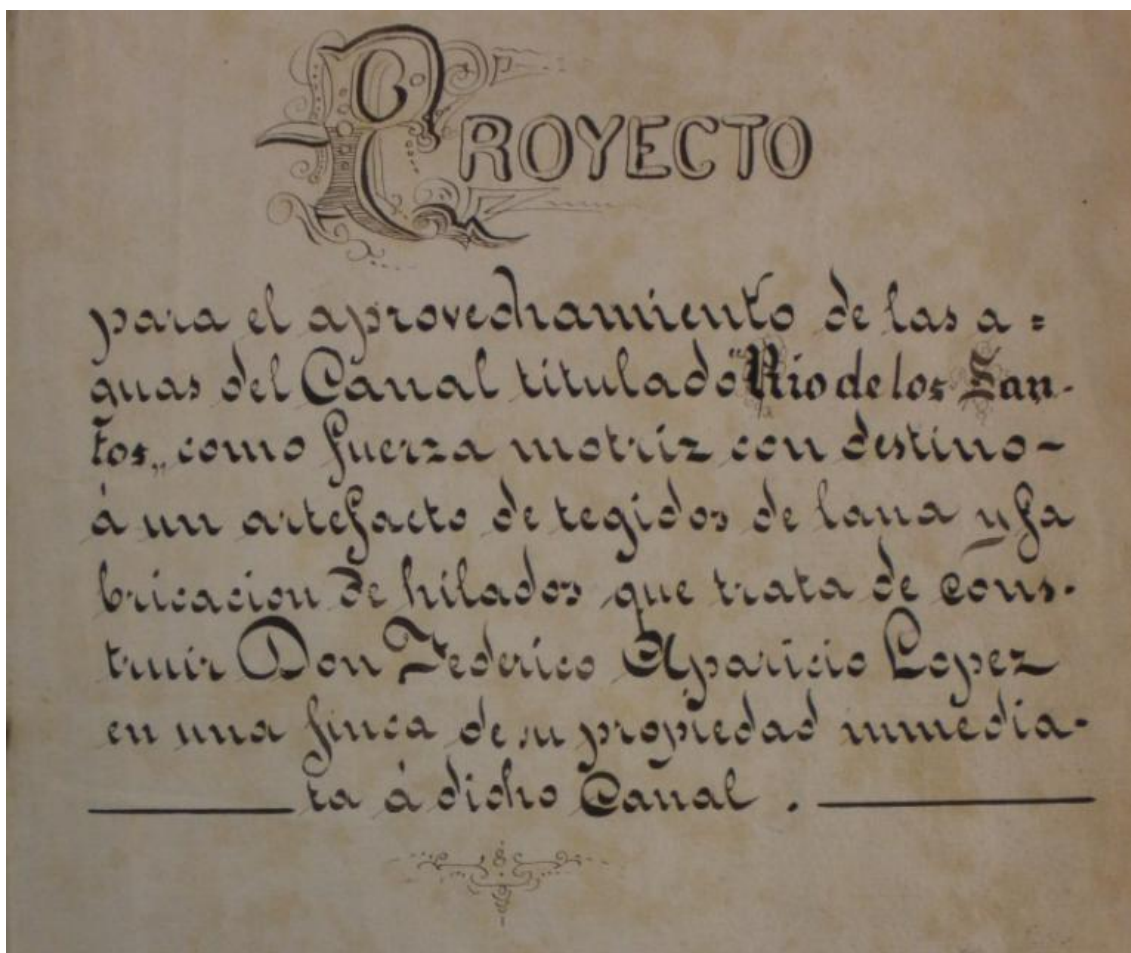 PROYECTO
para el aprovechamiento de las a=
guas del Canal titulado "Rio de los San-
tos„ como fuerza motriz con destino-
á un artefacto de tegidos de lana y fa
bricacion de hilados que trata de cons-
truir Don Federico Aparicio Lopez
en una finca de su propiedad inmedia-
ta á dicho Canal.